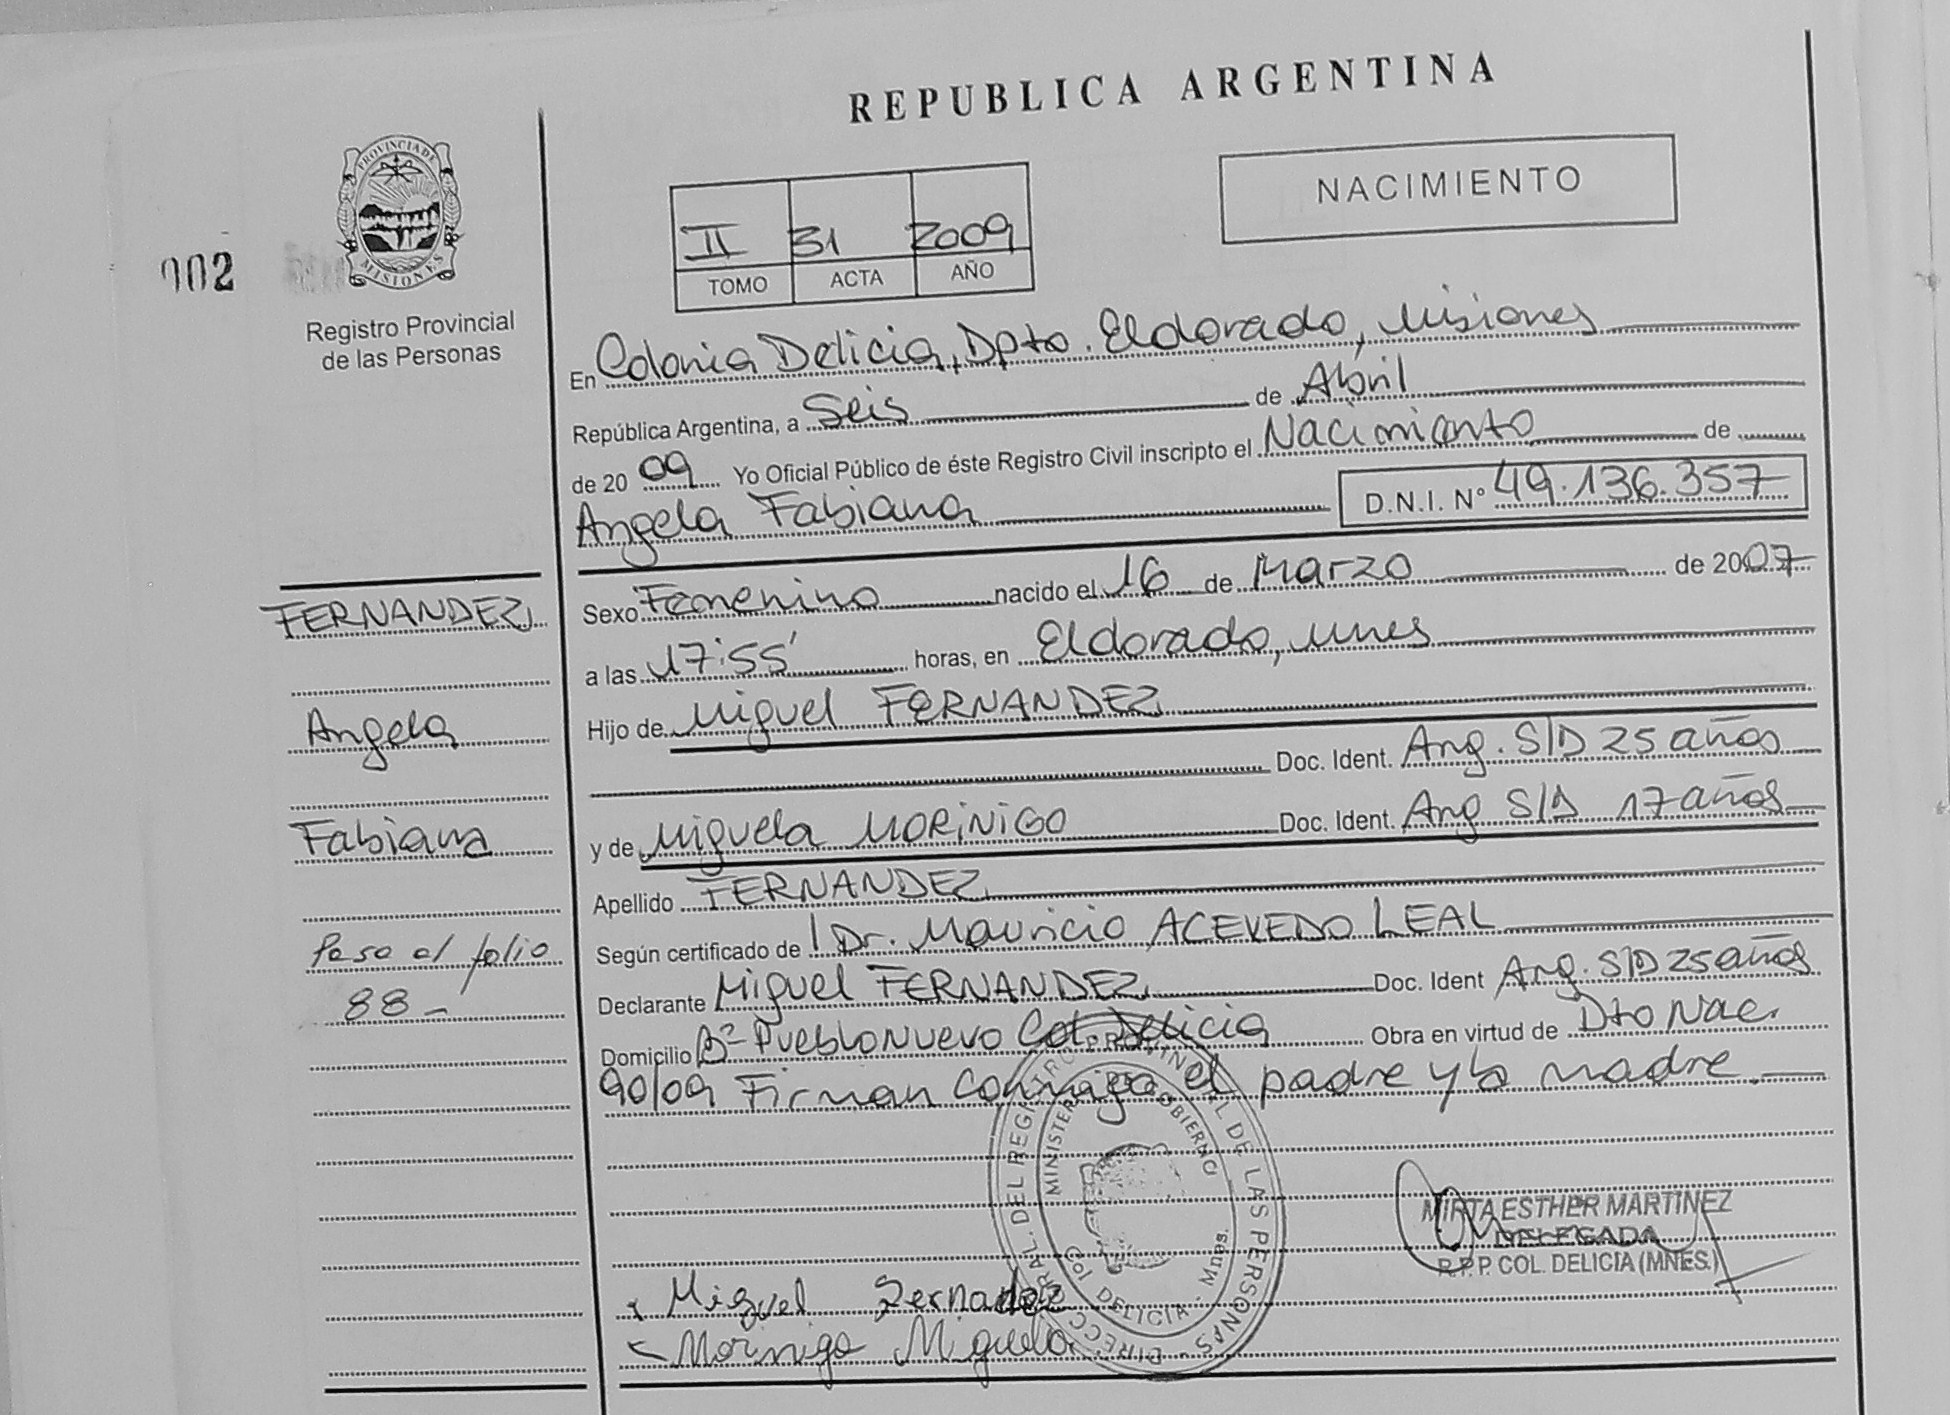 REPUBLICA ARGENTINA
PROVINCIA DE
MISIONES
NACIMIENTO
002
II 31 2009
TOMO ACTA AÑO
Registro Provincial
de las Personas
En Colonia Delicia, Dpto. Eldorado, Misiones
República Argentina, a Seis de Abril
de 20 09 Yo Oficial Público de éste Registro Civil inscripto el Nacimiento de
Angela Fabiana D.N.I. N° 49.136.357
FERNANDEZ
Sexo Femenino nacido el 16 de Marzo de 2007
a las 17:55' horas, en Eldorado, Mnes
Angela
Hijo de Miguel FERNANDEZ
Doc. Ident. Arg. S/D 25 años
Fabiana
y de Miguela MORINIGO Doc. Ident. Arg S/D 17 años
Apellido FERNANDEZ
Paso al folio
88-
Según certificado de Dr. Mauricio ACEVEDO LEAL
Declarante Miguel FERNANDEZ Doc. Ident Arg. S/D 25 años
Domicilio Bº Pueblo Nuevo Col. Delicia Obra en virtud de Dto Nac.
90/09 Firman conmigo el padre y la madre.
MIRTA ESTHER MARTINEZ
DELEGADA
R.P.P. COL. DELICIA (MNES.)
Miguel Fernadez
Morinigo Miguela
DIRECC. GRAL. DEL REGISTRO PROVINCIAL DE LAS PERSONAS
MINISTERIO DE GOBIERNO
COL. DELICIA - Mnes.